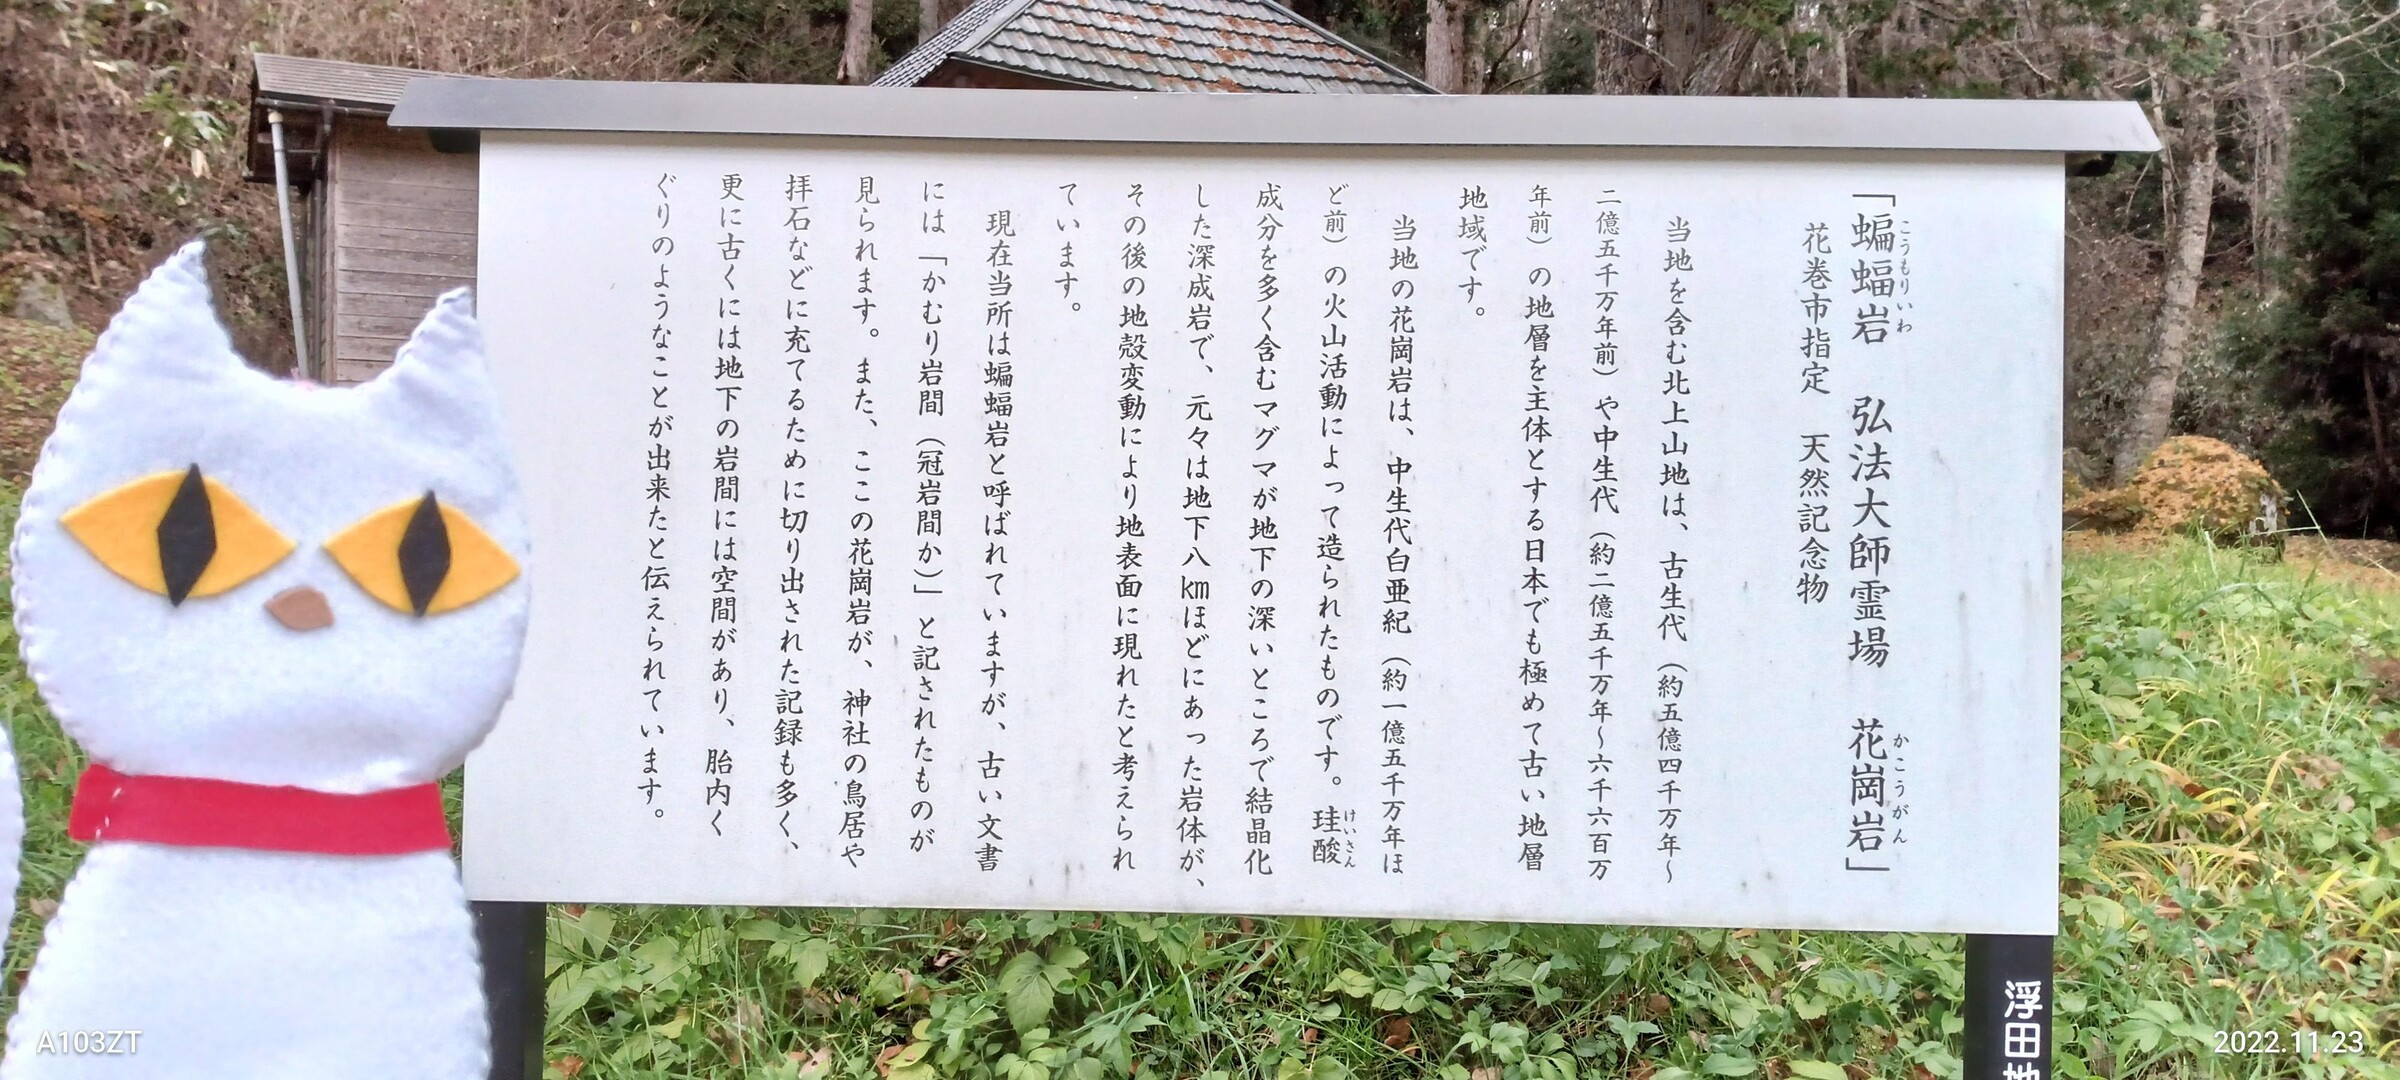 「蝙蝠岩　弘法大師霊場　花崗岩」
こうもりいわ
かこうがん
花巻市指定　天然記念物
当地を含む北上山地は、古生代（約五億四千万年～
二億五千万年前）や中生代（約二億五千万年～六千六百万
年前）の地層を主体とする日本でも極めて古い地層
地域です。
当地の花崗岩は、中生代白亜紀（約一億五千万年ほ
ど前）の火山活動によって造られたものです。珪酸
けいさん
成分を多く含むマグマが地下の深いところで結晶化
した深成岩で、元々は地下八㎞ほどにあった岩体が、
その後の地殻変動により地表面に現れたと考えられ
ています。
現在当所は蝙蝠岩と呼ばれていますが、古い文書
には「かむり岩間（冠岩間か）」と記されたものが
見られます。また、ここの花崗岩が、神社の鳥居や
拝石などに充てるために切り出された記録も多く、
更に古くには地下の岩間には空間があり、胎内く
ぐりのようなことが出来たと伝えられています。
浮田地
A103ZT
2022.11.23